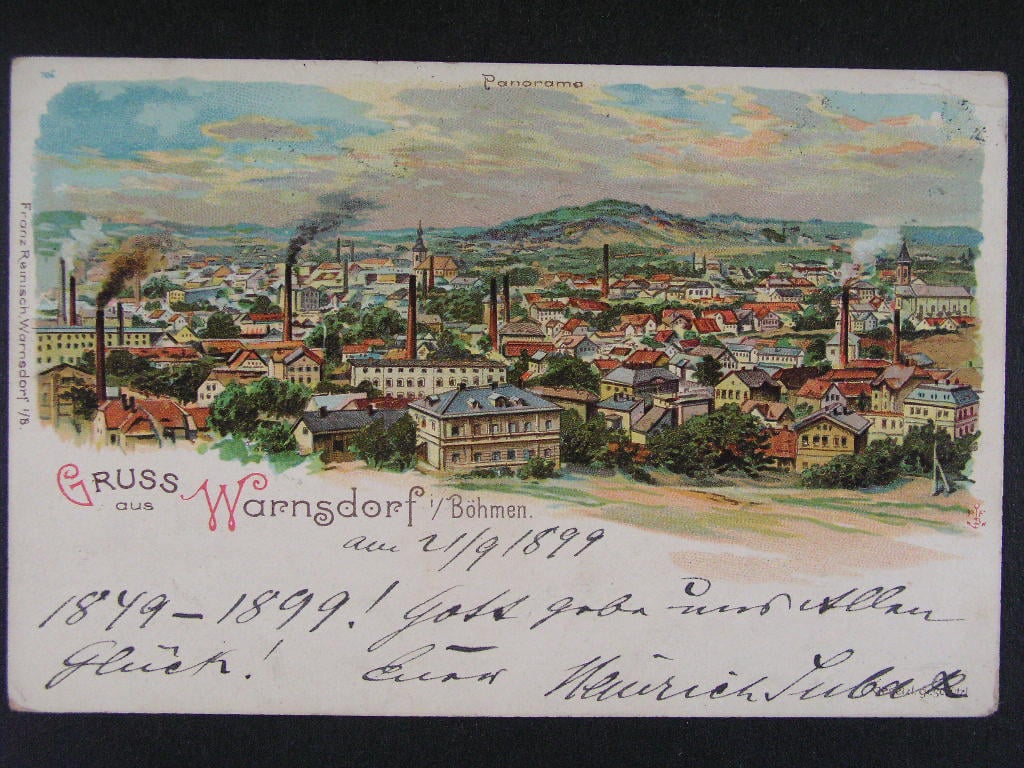 Panorama
Franz Remisch, Warnsdorf i/B.
GRUSS
aus Warnsdorf i/ Böhmen.
am 21/9 1899
1849 – 1899! Gott gebe uns Allen
Glück! Euer Heinrich